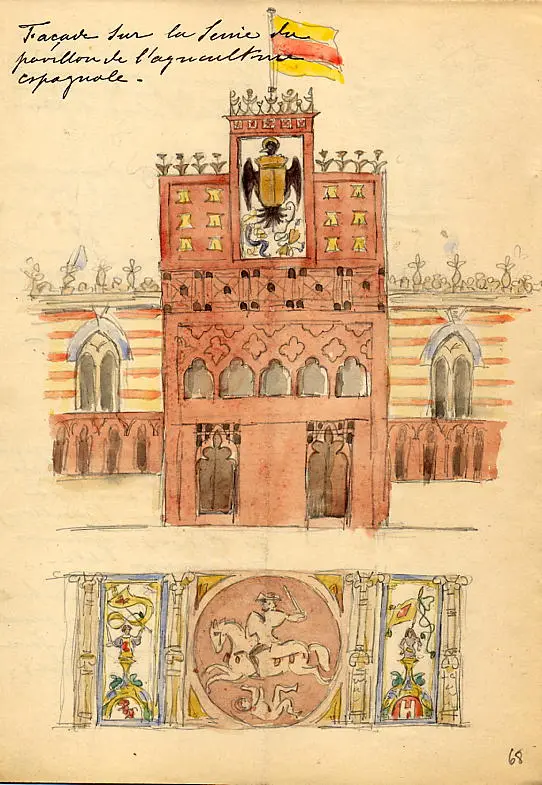 Façade sur la Seine du
pavillon de l'agriculture
espagnole.
68